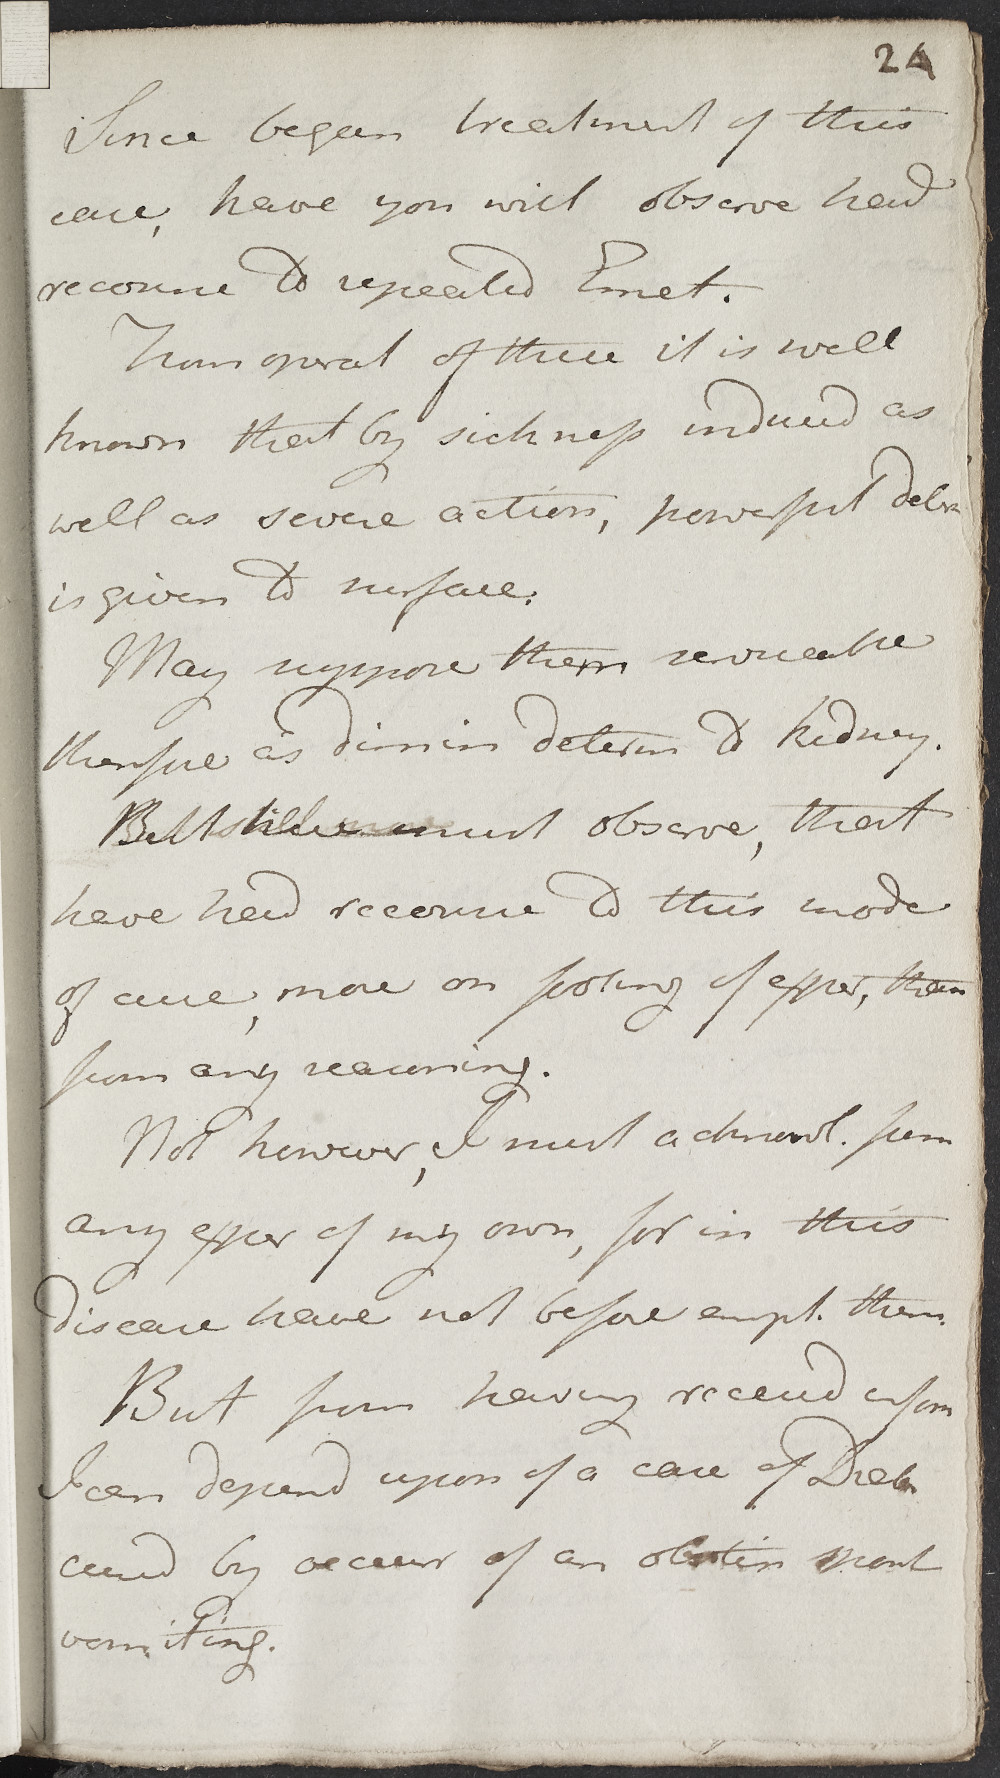 24
Since began treatment of this
case, have you will observe had
recourse to repeated Emet.
From operat of these it is well
known that by sickness induced as
well as severe action, powerful determ
is given to surface.
May suppose them serviceable
therefore as dimin determ to kidney.
But must observe, that
have had recourse to this mode
of cure, more on footing of exper, than
from any reasoning.
Not however, I must acknowl. from
any exper of my own, for in this
disease have not before empl. them.
But from having received inform
I can depend upon of a case of Diab
cured by occurr of an obstin
vomiting.